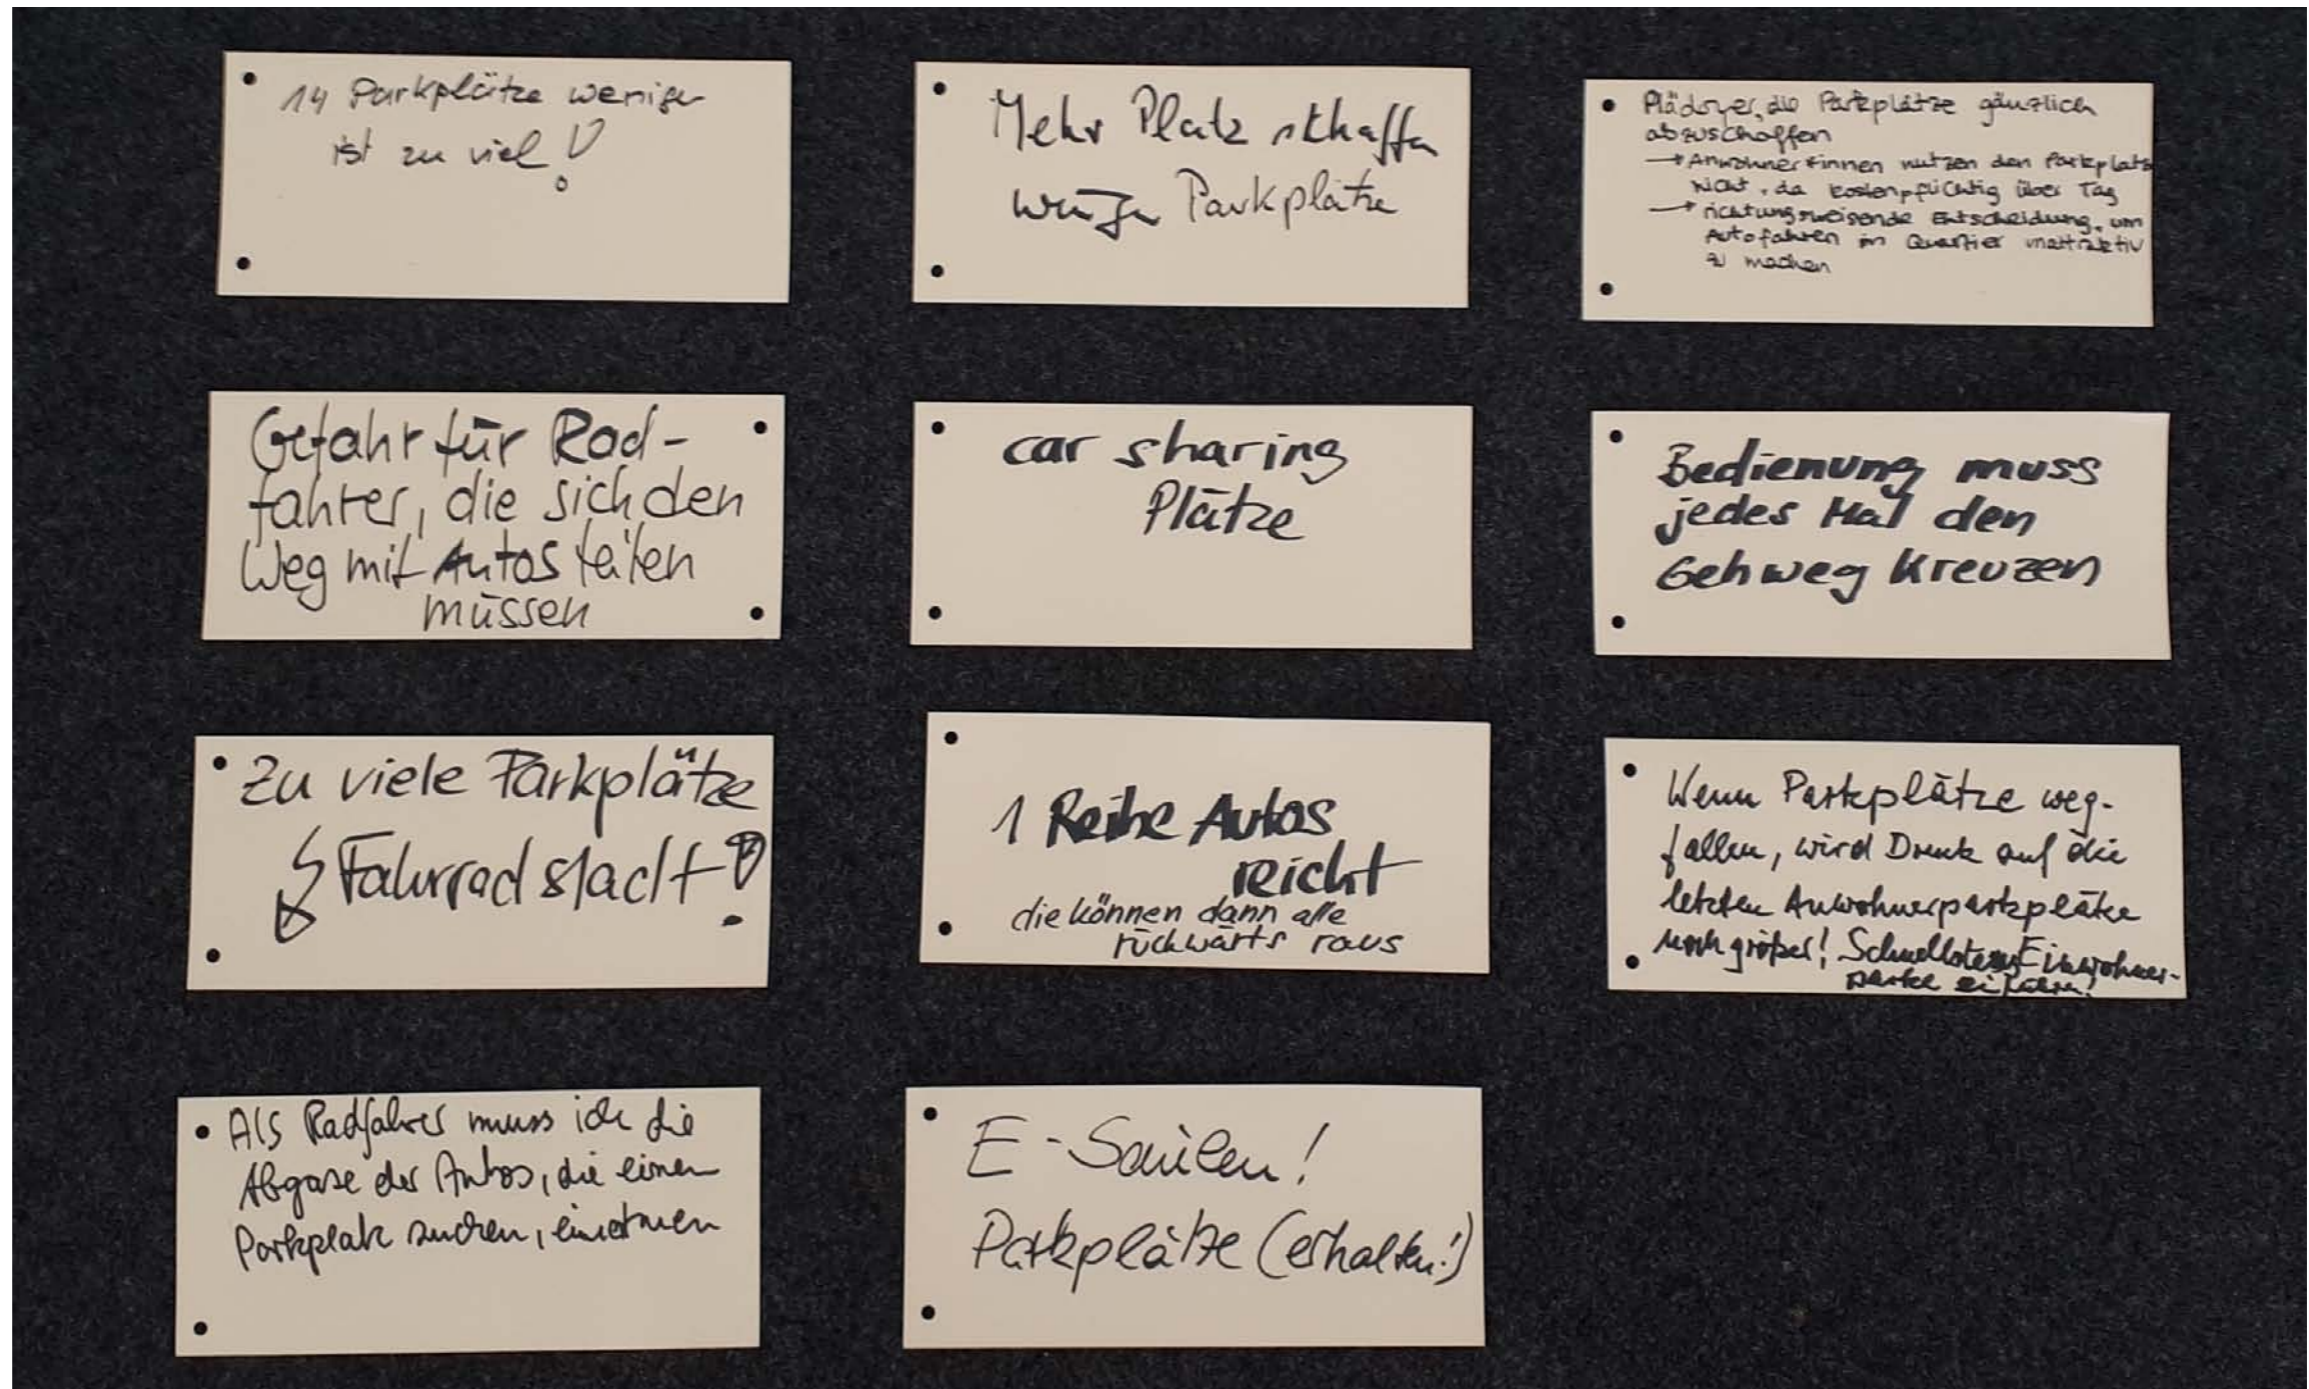 14 Parkplätze weniger
ist zu viel!
Mehr Platz schaffen
weniger Parkplätze
Plädoyer, die Parkplätze gänzlich
abzuschaffen
→ Anwohner*innen nutzen den Parkplatz
nicht, da kostenpflichtig über Tag
→ richtungsweisende Entscheidung, um
Autofahren im Quartier unattraktiv
zu machen
Gefahr für Rad-
fahrer, die sich den
Weg mit Autos teilen
müssen
car sharing
Plätze
Bedienung muss
jedes Mal den
Gehweg kreuzen
Zu viele Parkplätze
↯ Fahrradstadt!
1 Reihe Autos
reicht
die können dann alle
rückwärts raus
Wenn Parkplätze weg-
fallen, wird Druck auf die
letzten Anwohnerparkplätze
noch größer! Schnellstens Einwohner-
parken einführen!
Als Radfahrer muss ich die
Abgase der Autos, die einen
Parkplatz suchen, einatmen
E-Säulen!
Parkplätze (erhalten!)